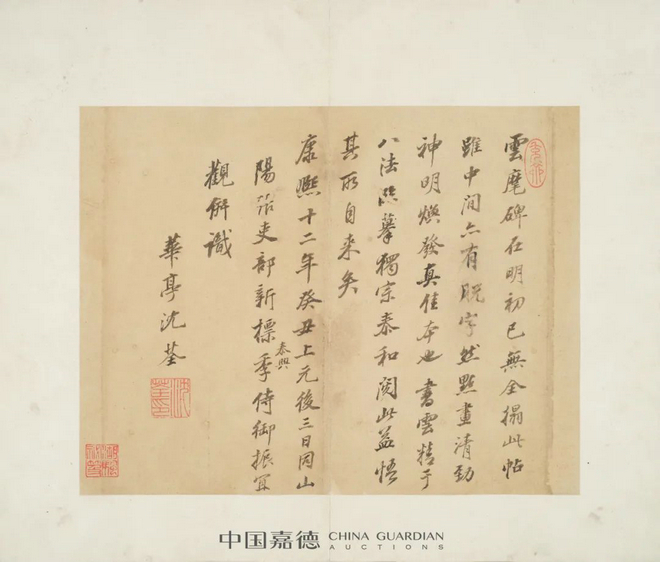 雲麾碑在明初已無全搨此帖
雖中間亦有脫字然點畫清勁
神明煥發真佳本也書雲精于
八法臨摹獨宗泰和閱此益悟
其所自来矣
康熙十二年癸丑上元後三日同山
陽張吏部新標泰興季侍御振宜
觀併識
華亭沈荃
中国嘉德 CHINA GUARDIAN
AUCTIONS